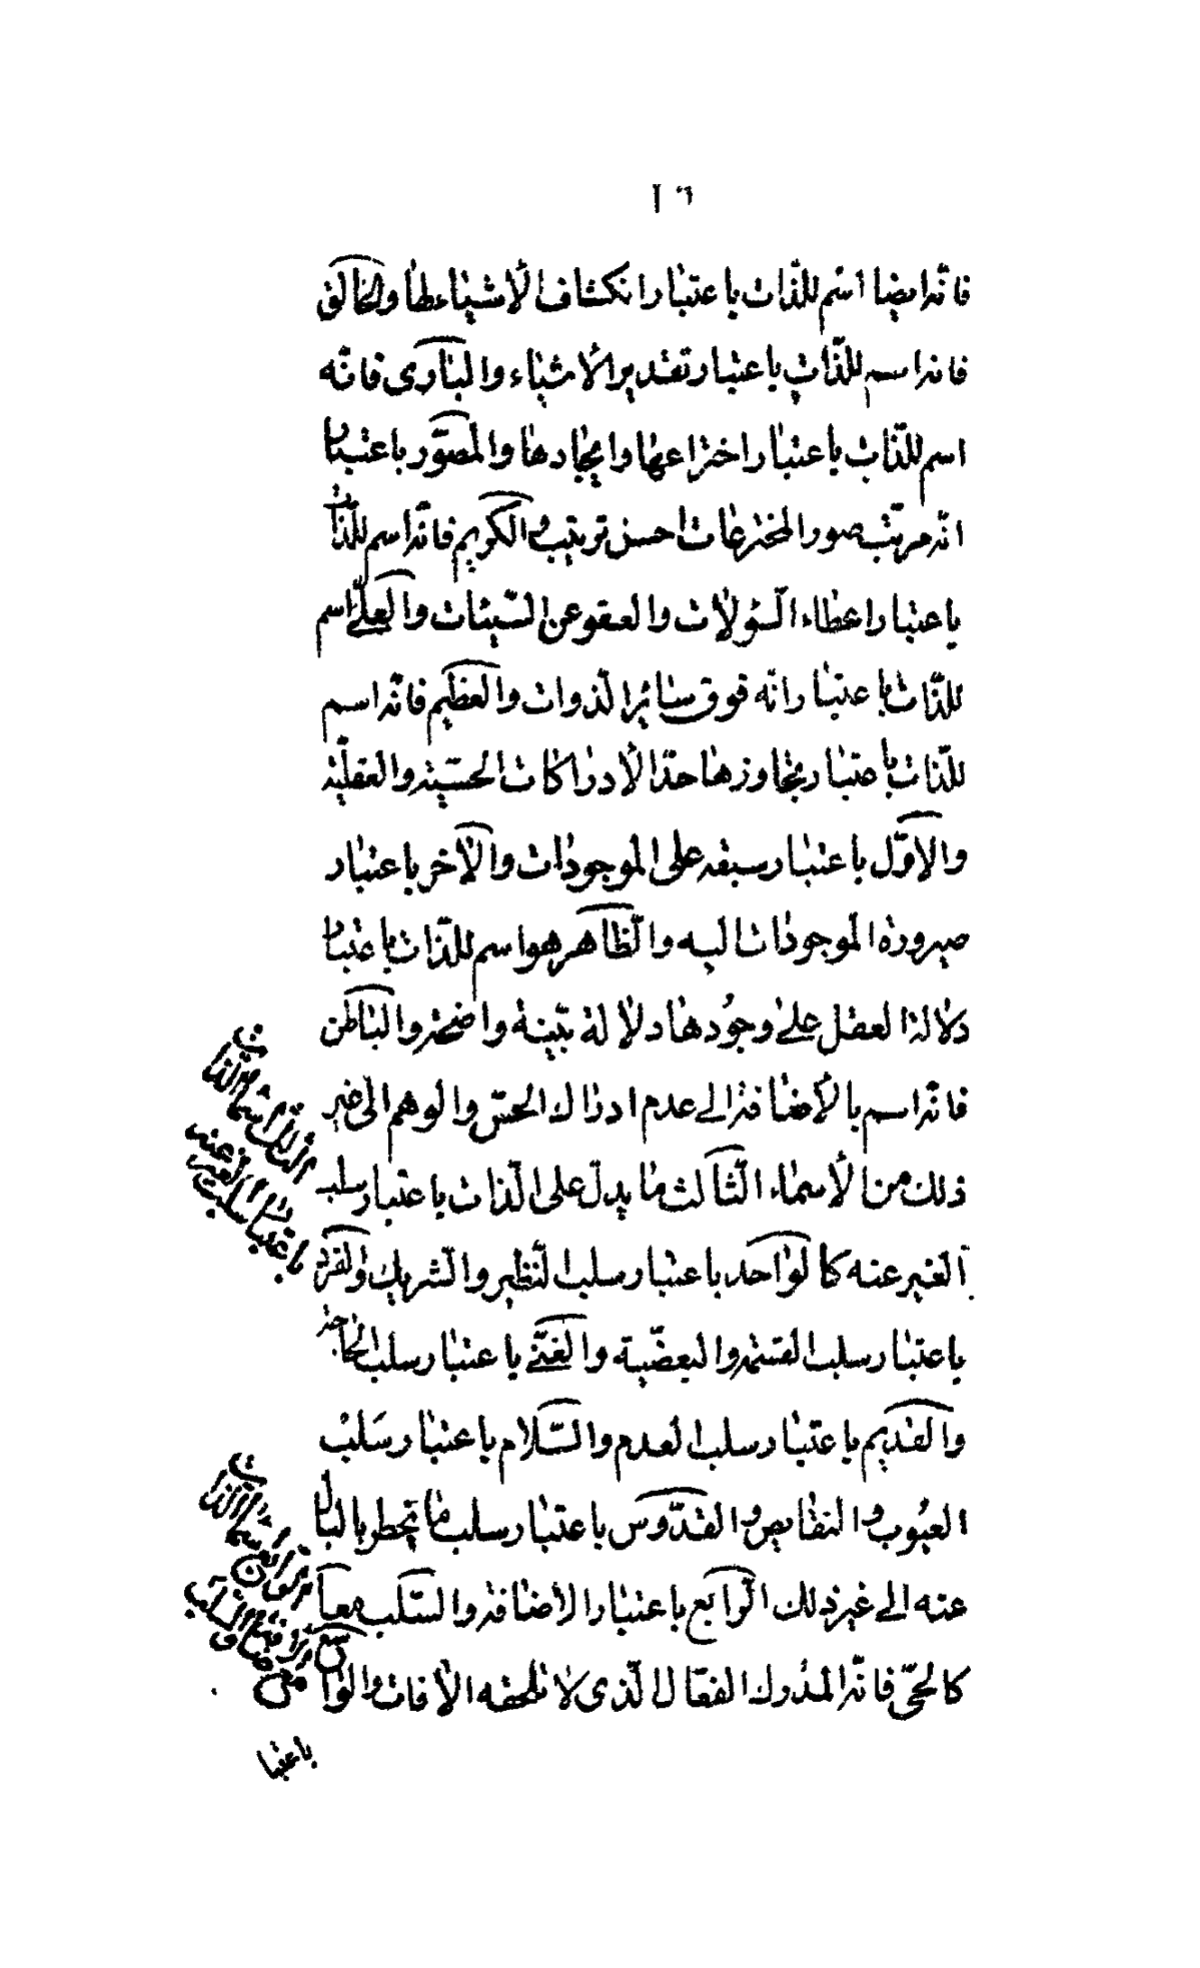 ١٦
فانّه ايضا اسم للذّات باعتبار انكشاف الأشياء لها والخالق
فانه اسم للذّات باعتبار تقدير الأشياء والبارى فانّه
اسم للذّات باعتبار اختراعها وايجادها والمصوّر باعتبار
انّه مرتّب صور المخترعات احسن ترتيب والكريم فانّه اسم للذّات
باعتبار اعطاء السّؤلات والعفو عن السّيئات والعلىّ اسم
للذّات باعتبار انّه فوق سائر الذوات والعظيم فانّه اسم
للذّات باعتبار تجاوزها حدّ الأدراكات الحسّية والعقليّة
والاوّل باعتبار سبقه على الموجودات والآخر باعتبار
صيرورة الموجودات اليه والظّاهر هو اسم للذّات باعتبار
دلالة العقل على وجودها دلالة بيّنة واضحة والباطن
فانّه اسم بالأضافة الى عدم ادراك الحسّ والوهم الى غير
ذلك من الأسماء الثّالث ما يدلّ على الذّات باعتبار سلب
الغير عنه كالواحد باعتبار سلب النّظير والشّريك والفرد
باعتبار سلب القسمة والبعضّية والغنىّ باعتبار سلب الحاجة
والقديم باعتبار سلب العدم والسّلام باعتبار سَلب
العيُوب والنقايص والقدّوس باعتبار سلب ما يخطر بالبال
عنه الى غير ذلك الرّابع باعتبار الأضافة والسّلب معاً
كالحىّ فانّه المدرك الفعّال الّذى لا تلحقه الآفات والواسع
باعتبا
الثالث اسماء الذّات
باعتبار سلب الغير عنه
الرابع اسماء الذات